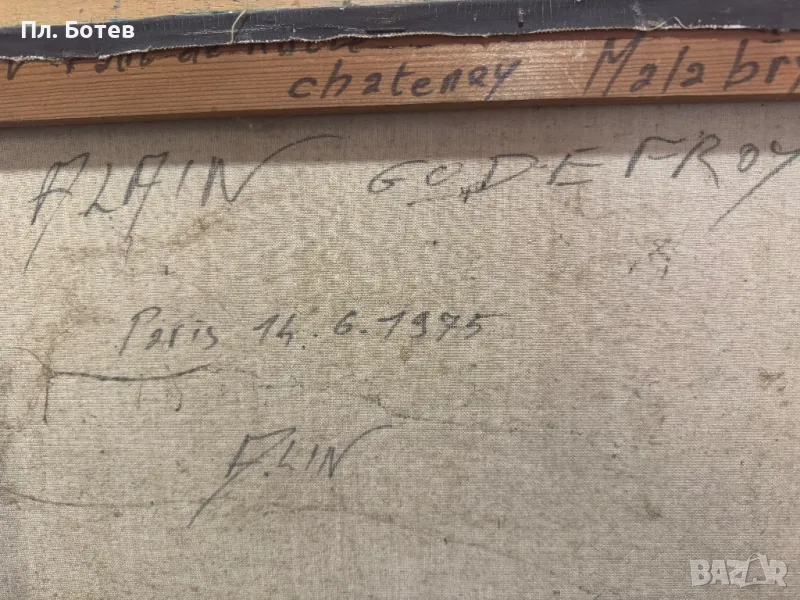 Пл. Ботев
chatenay Malabry
ALAIN GODEFROY
Paris 14.6.1975
A.LIN
BAZAR